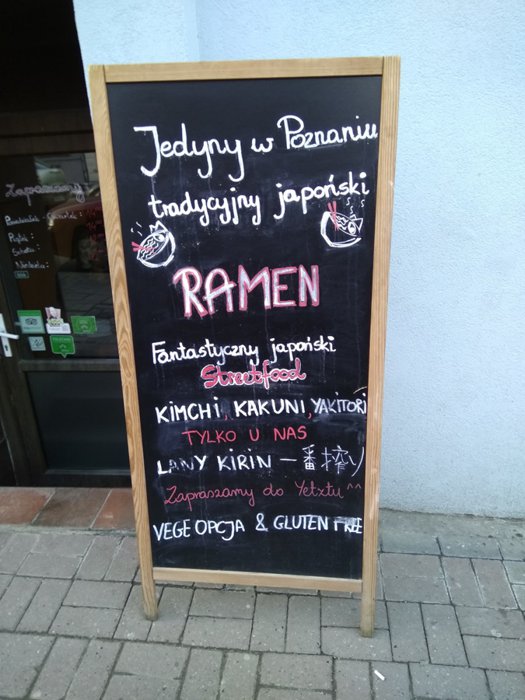 Jedyny w Poznaniu
tradycyjny japoński
RAMEN
Fantastyczny japoński
Streetfood
KIMCHI, KAKUNI, YAKITORI
TYLKO U NAS
LANY KIRIN 一番搾り
Zapraszamy do Yetztu ^^
VEGE OPCJA & GLUTEN FREE
Zapraszamy
Poniedziałek - Czwartek:
Piątek:
Sobota:
Niedziela: